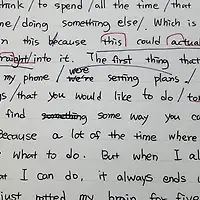 think / to spend / all the time / that
doing something else /. Which is
n this \ because this could actua
straight / into it. The first thing that
my phone / were we're setting plans /
gs / that you would like to do / to
find something some way you ca
because a lot of the time where
what to do. But when I al
at I can do, it always ends u
just rotted my brain for five